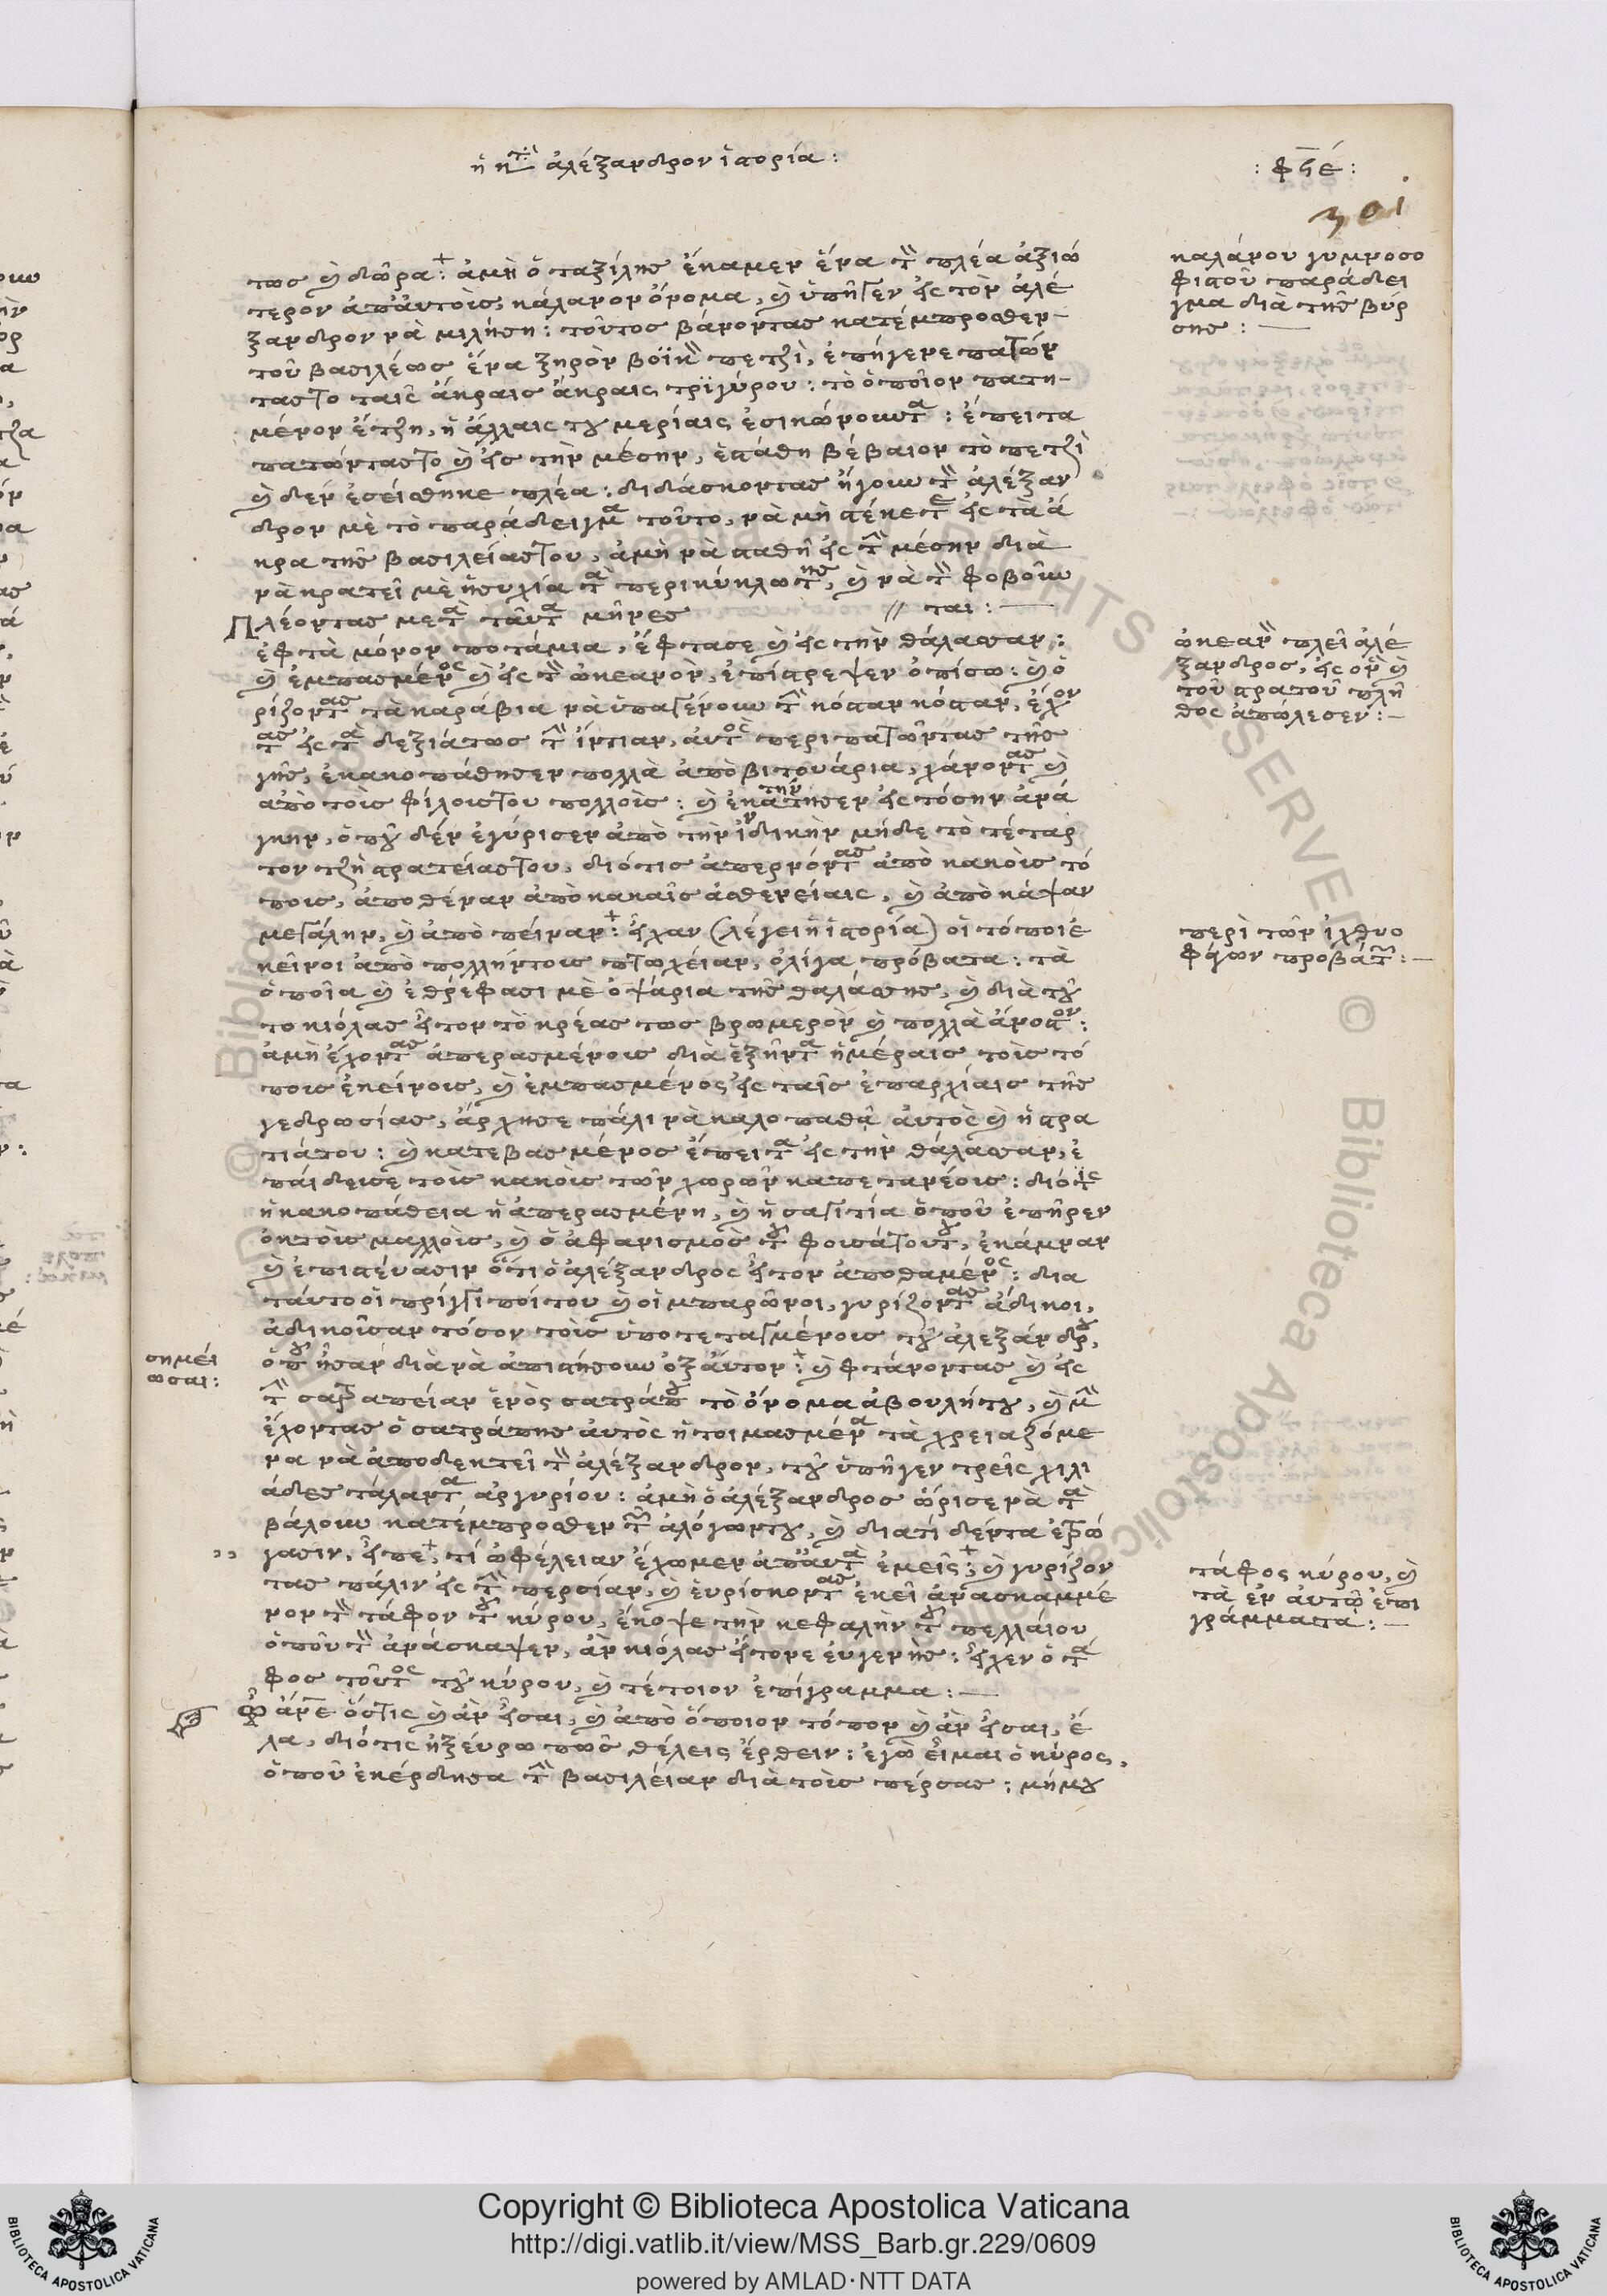 ἡ κτ̀ ἀλέξανδρον ἱστορία :
: φϟέ :
301
τως ϗ δῶρα : ἀμὴ ὁ ταξίλης ἔκαμεν ἕνα τ̀ πλέα ἀξιώ
τερον ἀπ' ἀυτοὶς, κάλανον ὄνομα, ϗ ὑπῆγεν εἰς τὸν ἀλέ
ξανδρον νὰ μιλήση : τοῦτος βάνοντας κατέμπροσθεν
τοῦ βασιλέως ἕνα ξηρὸν βοϊκ̀ πετζὶ, ἐπήγενε πατῶν
τάςτο ταῖς ἄκραις ἄκραις τριγύρου : τὸ ὁποῖον πατη-
μένον ἔτζη, ἡ ἄλλαις του μερίαις ἐσικώνουντα : ἔπειτα
πατώντας το ϗ εἰς τὴν μέσην, ἐστάθη βέβαιον τὸ πετζὶ
ϗ δὲν ἐσείσθηκε πλέα : διδάσκοντας ἤγουν τ̀ ἀλέξαν
δρον μὲ τὸ παράδειγμα τοῦτο, νὰ μὴ στέκεται εἰς τὰ ἄ
κρα τῆς βασιλείας του, ἀμὴ νὰ σταθῆ εἰς τ̀ μέσην διὰ
νὰ κρατεῖ μὲ ἡσυχία τὰ περικύκλωτης, ϗ νὰ τ̀ φοβοῦν
// ται :
Πλέοντας μετὰ ταῦτα μῆνες
ἑφτὰ μόνον ποτάμια, ἔφτασε ϗ εἰς τὴν θάλασσαν :
ϗ ἐμπασμένος ϗ εἰς τ̀ ὠκεανὸν, ἐπίστρεψεν ὀπίσω : ϗ ὁ
ρίζοντας τὰ καράβια νὰ ὑπαγένουν τ̀ κόσταν κόσταν, ἔχον
τας εἰς τὰ δεξιάτως τ̀ ἰντίαν, ἀυτὸς περιπατῶντας τῆς
γῆς, ἐκακοπάθησεν πολλὰ ἀπὸ βιτουάρια, χάνοντας ϗ
ἀπὸ τοὶς φίλους του πολλοὶς : ϗ ἐκατήντησεν εἰς τόσην ἀνά
γκην, ὁποῦ δὲν ἐγύρισεν ἀπὸ τὴν ἰνδικὴν μήδε τὸ τέταρ
τον τζὴ στρατείας του, διότις ἀπερνόντας ἀπὸ κακοὶς τό
ποις, ἀποθέναν ἀπὸ κακαῖς ἀσθενείαις, ϗ ἀπὸ κάψαν
μεγάλην, ϗ ἀπὸ πείναν : εἶχαν (λέγει ἡ ἱστορία) οἱ τόποι ἐ
κεῖνοι ἀπὸ πολληντοὺς πτωχείαν, ὀλίγα πρόβατα : τὰ
ὁποῖα ϗ ἐθρέφασι μὲ ὀψάρια τῆς θαλάσσης, ϗ διὰ τοῦ
το κιόλας εἶτον τὸ κρέας τως βρωμερὸν ϗ πολλὰ ἄνοστον :
ἀμὴ ἔχοντας ἀπερασμένοις διὰ ἑξήντα ἡμέραις τοὶς τό
ποις ἐκείνοις, ϗ ἐμπασμένος εἰς ταῖς ἐπαρχίαις τῆς
γεδρωσίας, ἄρχησε πάλι νὰ καλοπαθᾶ ἀυτὸς ϗ ἡ στρα
τιάτου : ϗ κατεβασμένος ἔπειτα εἰς τὴν θάλασσαν, ἐ
παίδευσε τοὶς κακοὶς τῶν χωρῶν καπετανέους : διότις
ἡ κακοπάθεια ἡ ἀπερασμένη, ϗ ἡ σαγιτία ὁποῦ ἐπῆρεν
ὁκτοὶς μαλλοὶς, ϗ ὁ ἀφανισμὸς τοῦ φουσάτουτου, ἐκάμναν
ϗ ἐπιστέυασιν ὅτι ὁ ἀλέξανδρος εἶτον ἀποθαμένος : δια
τάυτο οἱ πρίγγιποί του ϗ οἱ μπαρῶνοι, γυρίζοντας ἄδικοι,
ἀδικοῖσαν τόσον τοὶς ὑποτεταγμένοις τοῦ ἀλεξάνδρου,
ὁποῦ ἦσαν διὰ νὰ ἀπιστήσουν ὀξ ἄυτον : ϗ φτάνοντας ϗ εἰς
τ̀ σατραπείαν ἑνὸς σατράπου τὸ ὄνομα ἀβουλήτου, ϗ μὴ
ἔχοντας ὁ σατράπης ἀυτὸς ἡτοιμασμένα τὰ χρειαζόμε
να νὰ ἀποδεκτεῖ τ̀ ἀλέξανδρον, τοῦ ὑπῆγεν τρεῖς χιλι
άδες τάλαντα ἀργυρίου : ἀμὴ ὁ ἀλέξανδρος ὥρισε νὰ τὰ
βάλουν κατέμπροσθεν τῶν ἀλόγωντου, ϗ διατί δὲντα ἐτρώ
γασιν, εἶπε, τί ὠφέλειαν ἔχωμεν ἀπ' ἀυτὰ ἐμεῖς; ϗ γυρίζον
τας πάλιν εἰς τ̀ περσίαν, ϗ ἑυρίσκοντας ἐκεῖ ἀνασκαμμέ
νον τ̀ τάφον τοῦ κύρου, ἔκοψε τὴν κεφαλὴν τοῦ πελλαίου
ὁποῦ τ̀ ἀνάσκαψεν, ἂν κιόλας εἴτονε ἑυγενὴς : εἶχεν ὁ τά
φος τοῦτος τοῦ κύρου, ϗ τέτοιον ἐπίγραμμα :
ὦ ἄνε ὅστις ϗ ἂν εἶσαι, ϗ ἀπὸ ὅποιον τόπον ϗ ἂν εἶσαι, ἔ
λα, διότις ἠξέυρω πῶς θέλεις ἔρθειν : ἐγὼ εἶμαι ὁ κύρος,
ὁποῦ ἐκέρδησα τ̀ βασιλείαν διὰ τοὶς πέρσας : μήμου
καλάνου γυμνοσο
φιστοῦ παράδει
γμα διὰ τῆς βύρ
σης :
ὠκεαν̀ πλεῖ ἀλέ
ξανδρος, εἰς ὃν ϗ
τοῦ στρατοῦ πλῆ
θος ἀπώλεσεν :
περὶ τῶν ἰχθυο
φάγων προβάτων :
σημεί
ωσαι :
τάφος κύρου, ϗ
τὰ ἐν ἀυτῶ ἐπι
γράμματα :
Copyright © Biblioteca Apostolica Vaticana
http://digi.vatlib.it/view/MSS_Barb.gr.229/0609
powered by AMLAD·NTT DATA
BIBLIOTECA APOSTOLICA VATICANA
BIBLIOTECA APOSTOLICA VATICANA